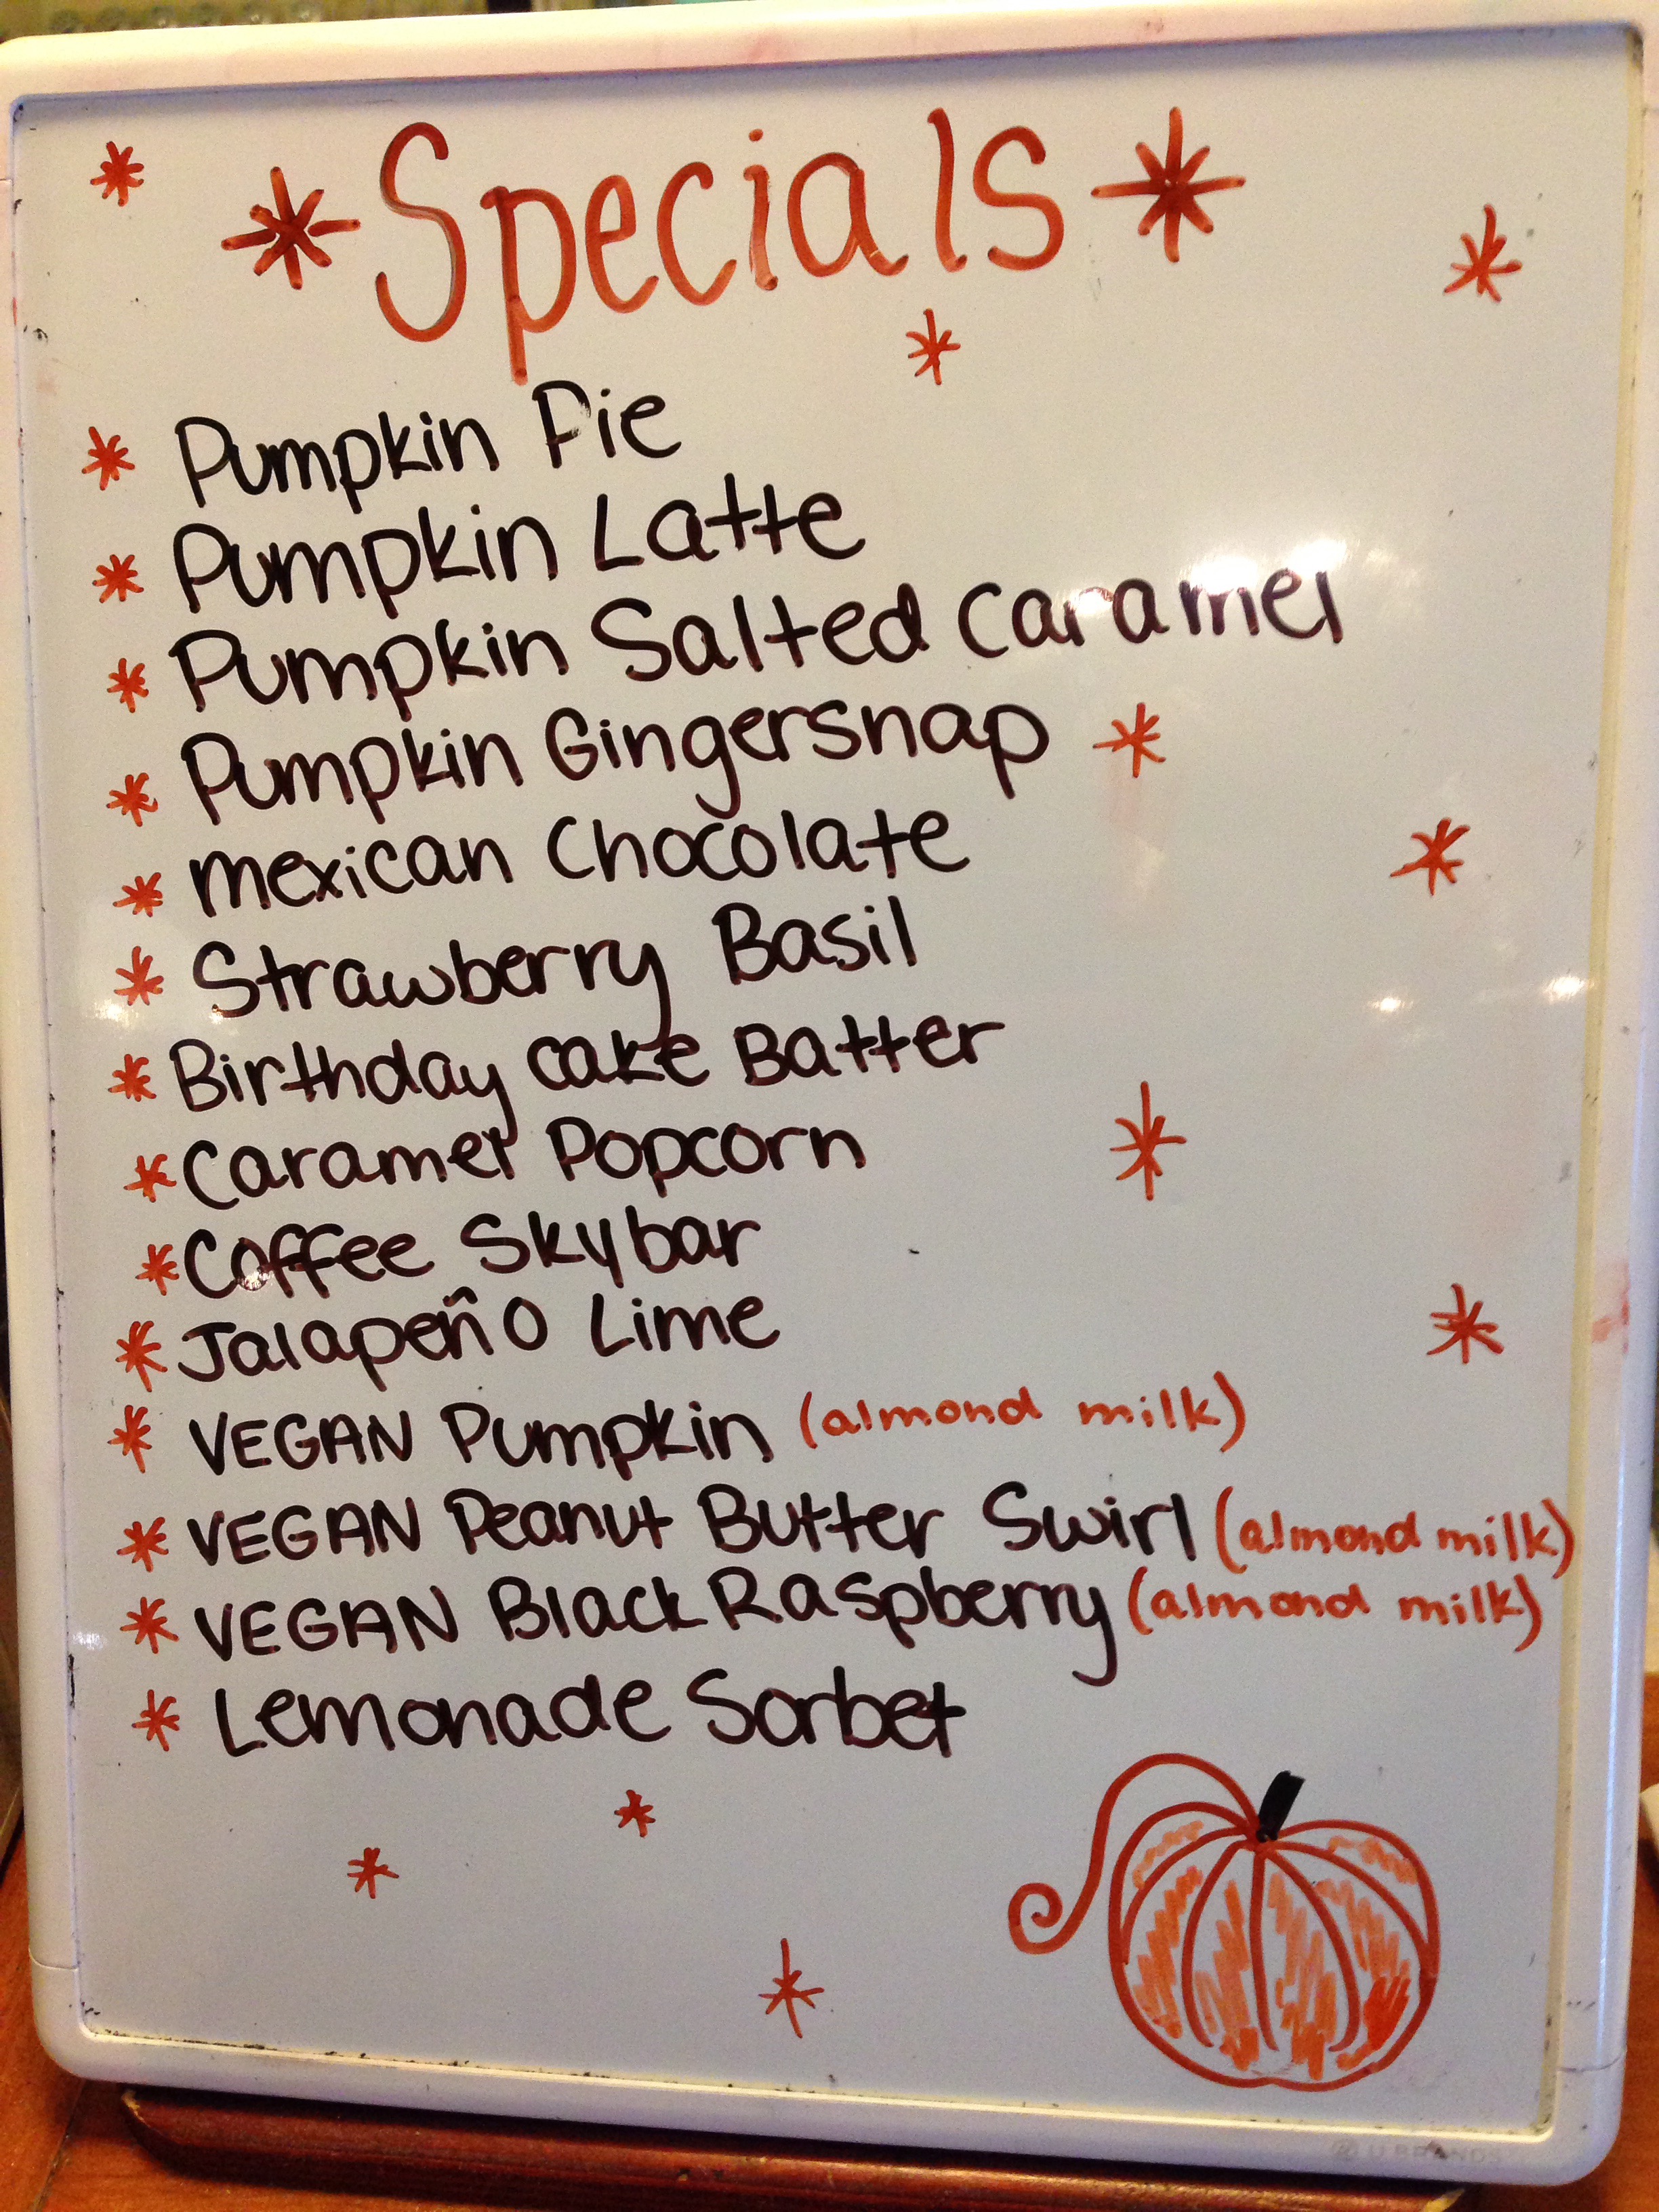 *Specials*
* Pumpkin Pie
* Pumpkin Latte
* Pumpkin Salted Caramel
* Pumpkin Gingersnap
* Mexican Chocolate
* Strawberry Basil
* Birthday Cake Batter
* Caramel Popcorn
* Coffee Skybar
* Jalapeño Lime
* VEGAN Pumpkin (almond milk)
* VEGAN Peanut Butter Swirl (almond milk)
* VEGAN Black Raspberry (almond milk)
* Lemonade Sorbet
U BRANDS